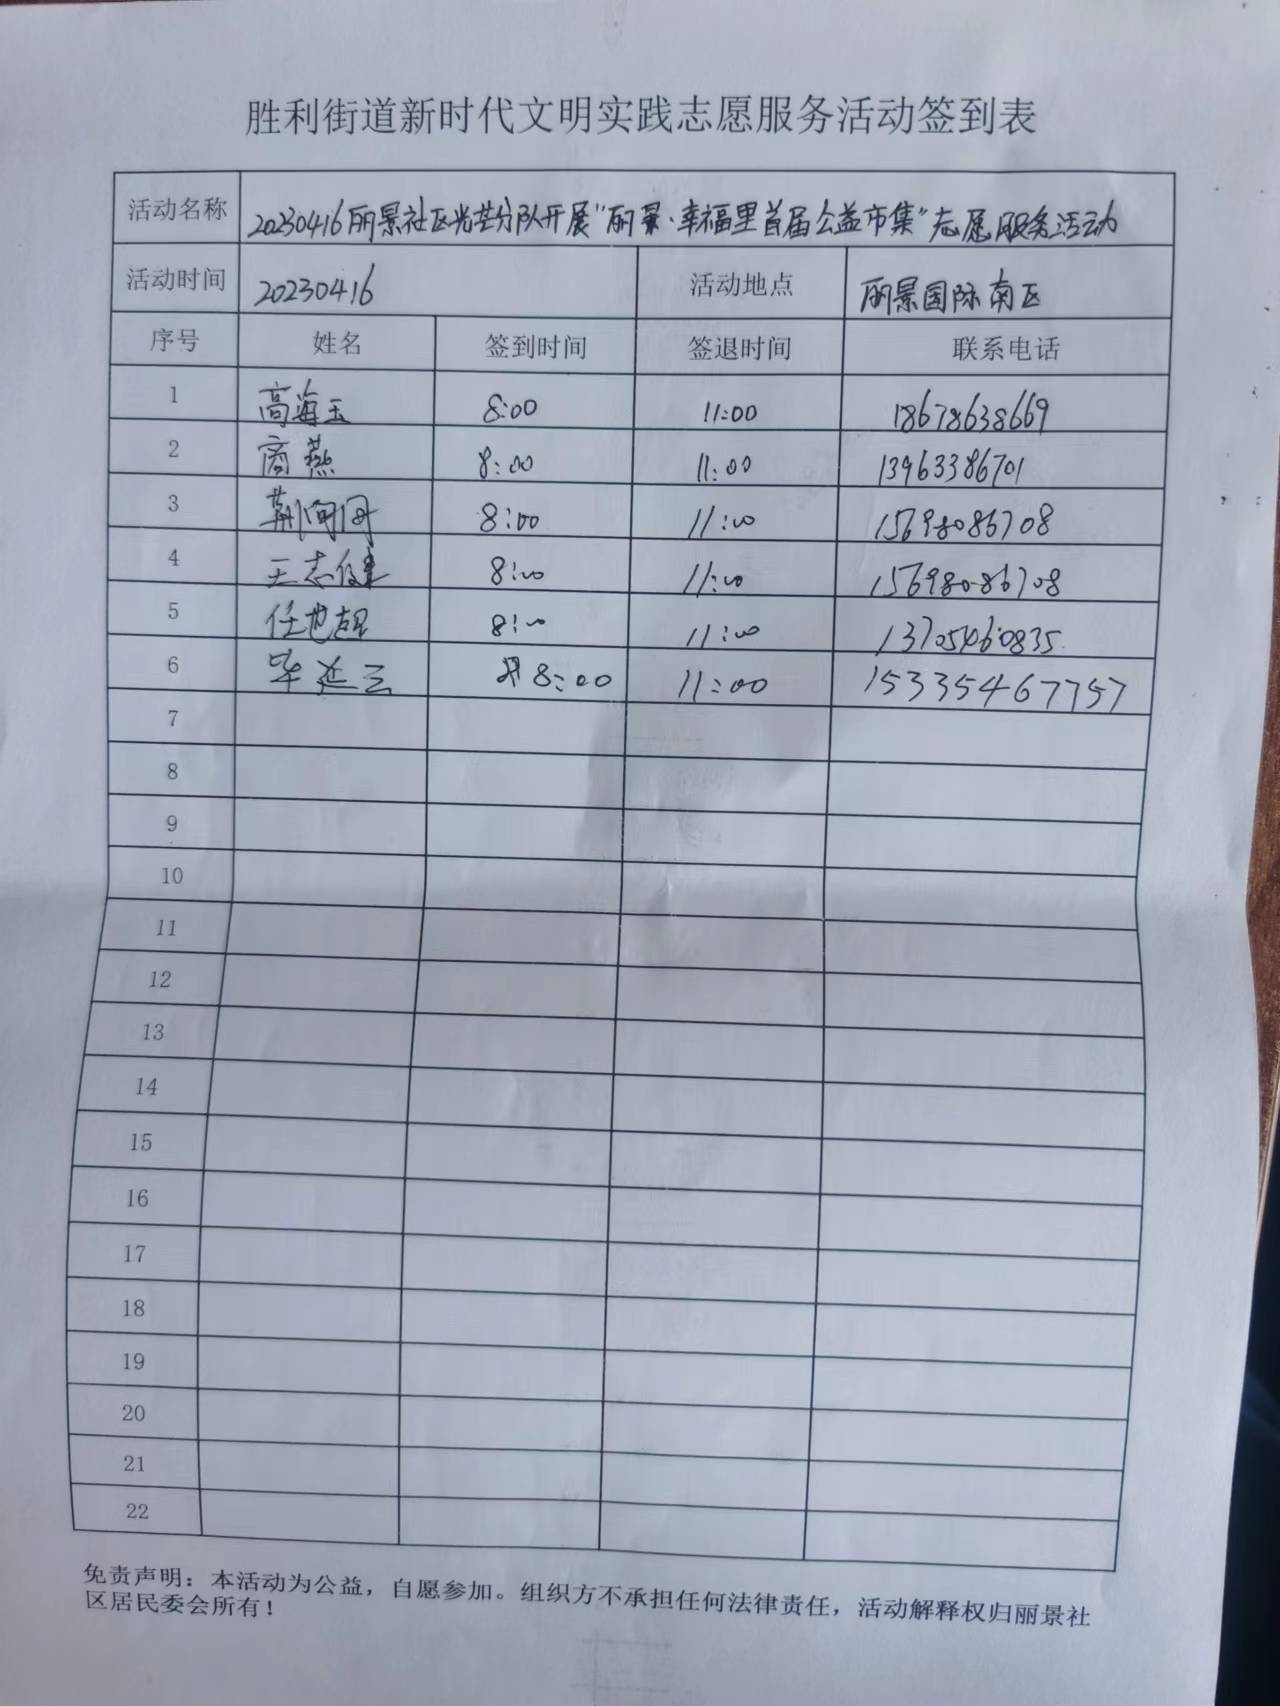 胜利街道新时代文明实践志愿服务活动签到表
活动名称 20230416丽景社区光芒分队开展"丽景·幸福里首届公益市集"志愿服务活动
活动时间 20230416 活动地点 丽景国际南区
序号 姓名 签到时间 签退时间 联系电话
1 高海玉 8:00 11:00 18678638669
2 商燕 8:00 11:00 13963386701
3 荆 8:00 11:00 15698086708
4 王志健 8:00 11:00 15698086708
5 任艳超 8:00 11:00 13705460835
6 毕延三 8:00 11:00 15335467757
7
8
9
10
11
12
13
14
15
16
17
18
19
20
21
22
免责声明：本活动为公益，自愿参加。组织方不承担任何法律责任，活动解释权归丽景社
区居民委会所有！